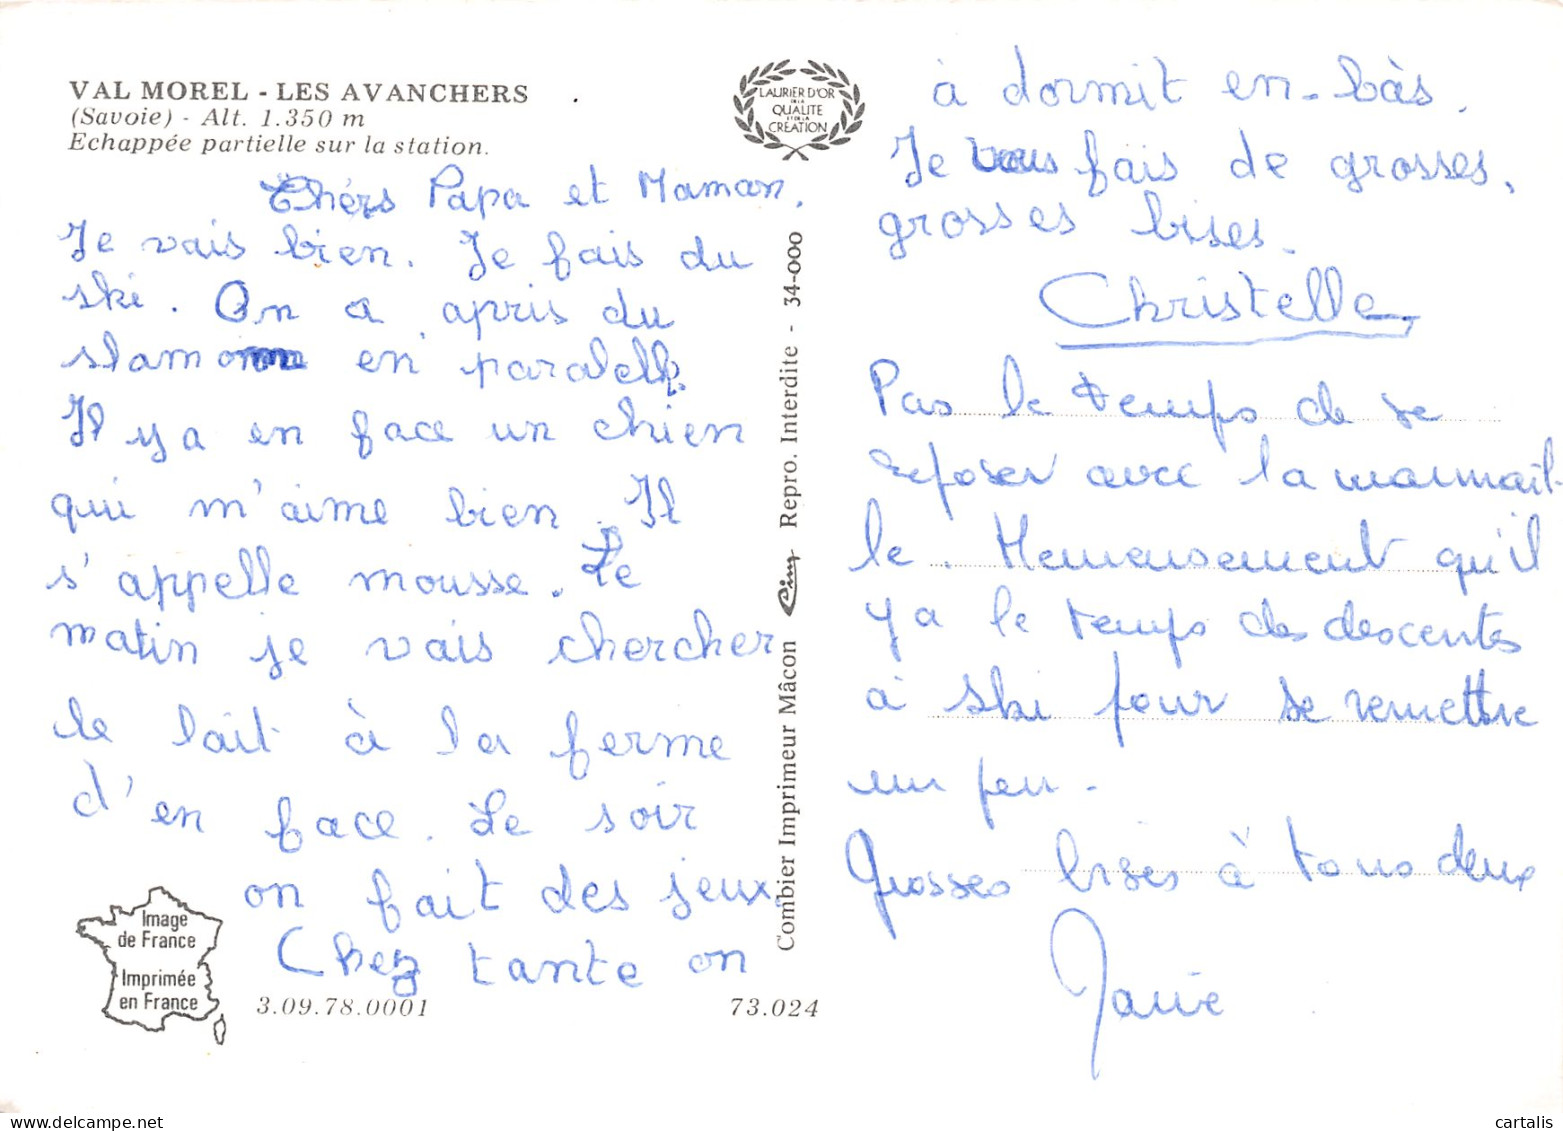 VAL MOREL - LES AVANCHERS
(Savoie) - Alt. 1.350 m
Echappée partielle sur la station.
LAURIER D'OR
DE LA
QUALITE
ET DE LA
CREATION
Chérs Papa et Maman,
Je vais bien. Je fais du
ski. On a apris du
slamom en paralelle.
Il y a en face un chien
qui m'aime bien. Il
s'appelle mousse. Le
matin je vais chercher
le lait à la ferme
d'en face. Le soir
on fait des jeux.
Chez tante on
Image
de France
Imprimée
en France
3.09.78.0001
73.024
Combier Imprimeur Mâcon Cim Repro. Interdite - 34-000
à dormit en-bàs.
Je vous fais de grosses,
grosses bises.
Christelle
Pas le temps de se
reposer avec la marmail-
le. Heureusement qu'il
y a le temps des descentes
à ski pour se remettre
un peu.
Grosses bises à tous deux